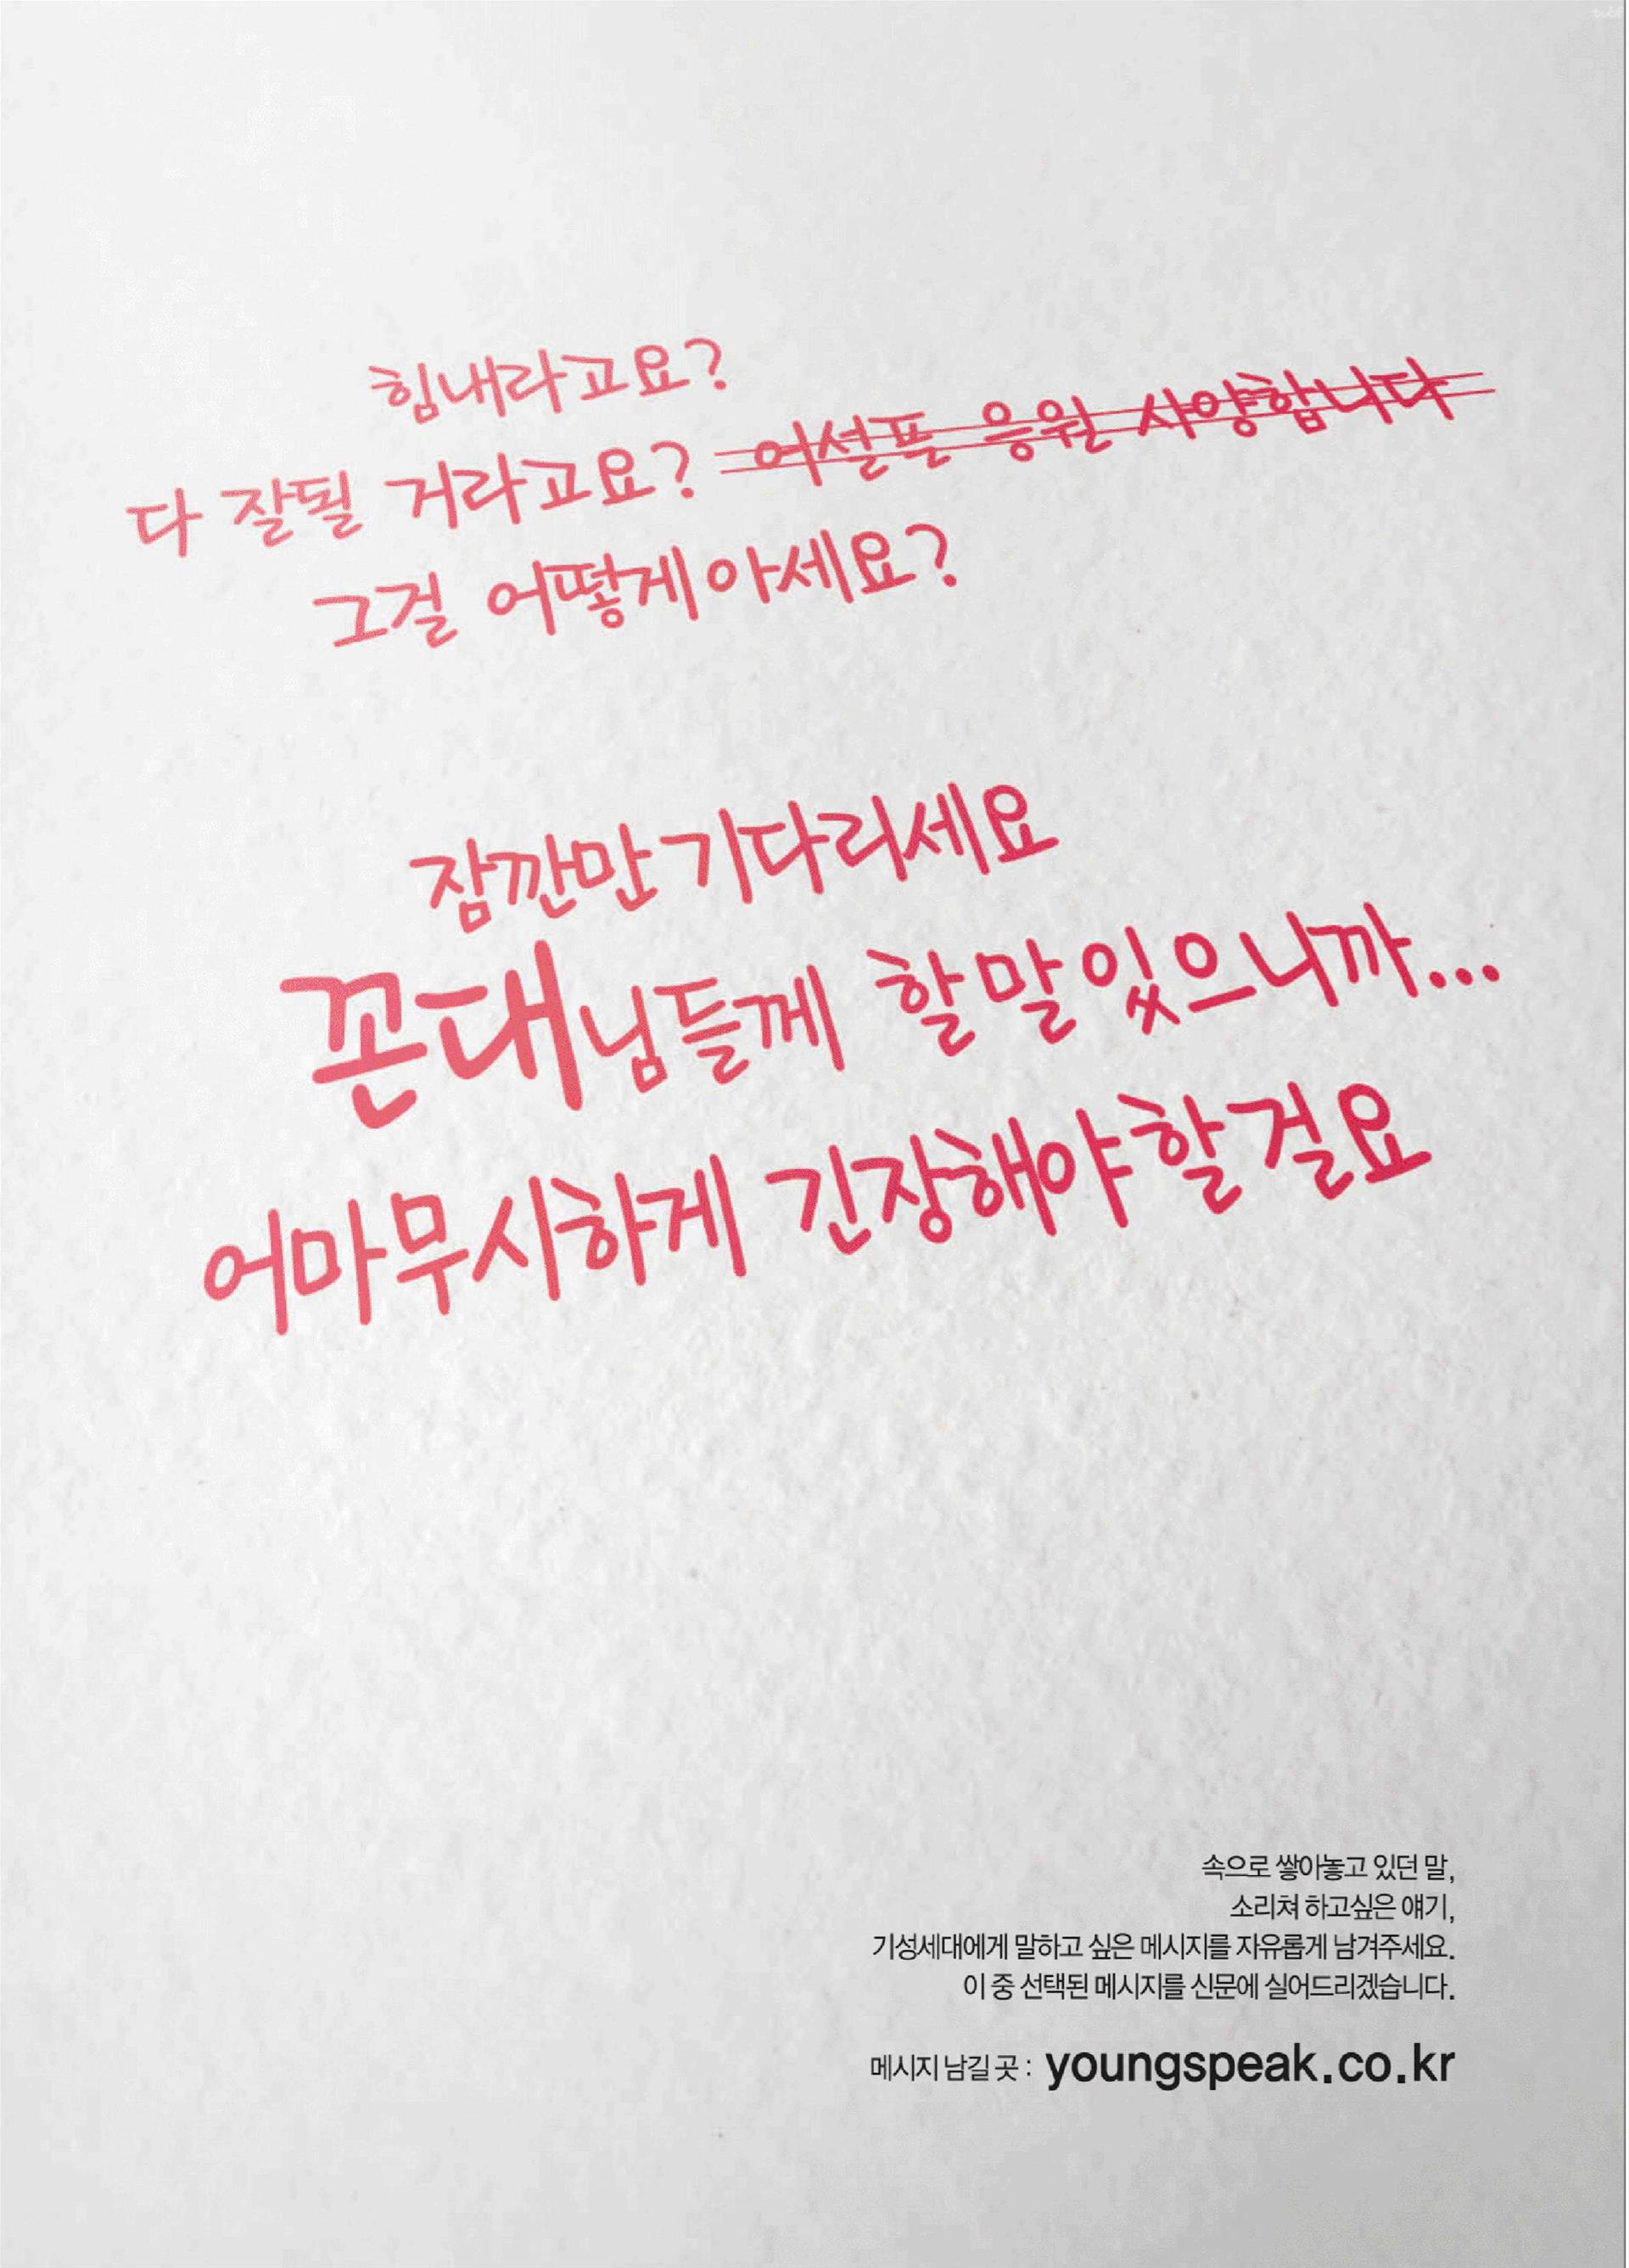 힘내라고요?
다 잘될 거라고요? 어설픈 응원 사양합니다
그걸 어떻게 아세요?
잠깐만 기다리세요
꼰대님들께 할 말 있으니까...
어마무시하게 긴장해야 할 걸요
속으로 쌓아놓고 있던 말,
소리쳐 하고싶은 얘기,
기성세대에게 말하고 싶은 메시지를 자유롭게 남겨주세요.
이 중 선택된 메시지를 신문에 실어드리겠습니다.
메시지 남길 곳 : youngspeak.co.kr